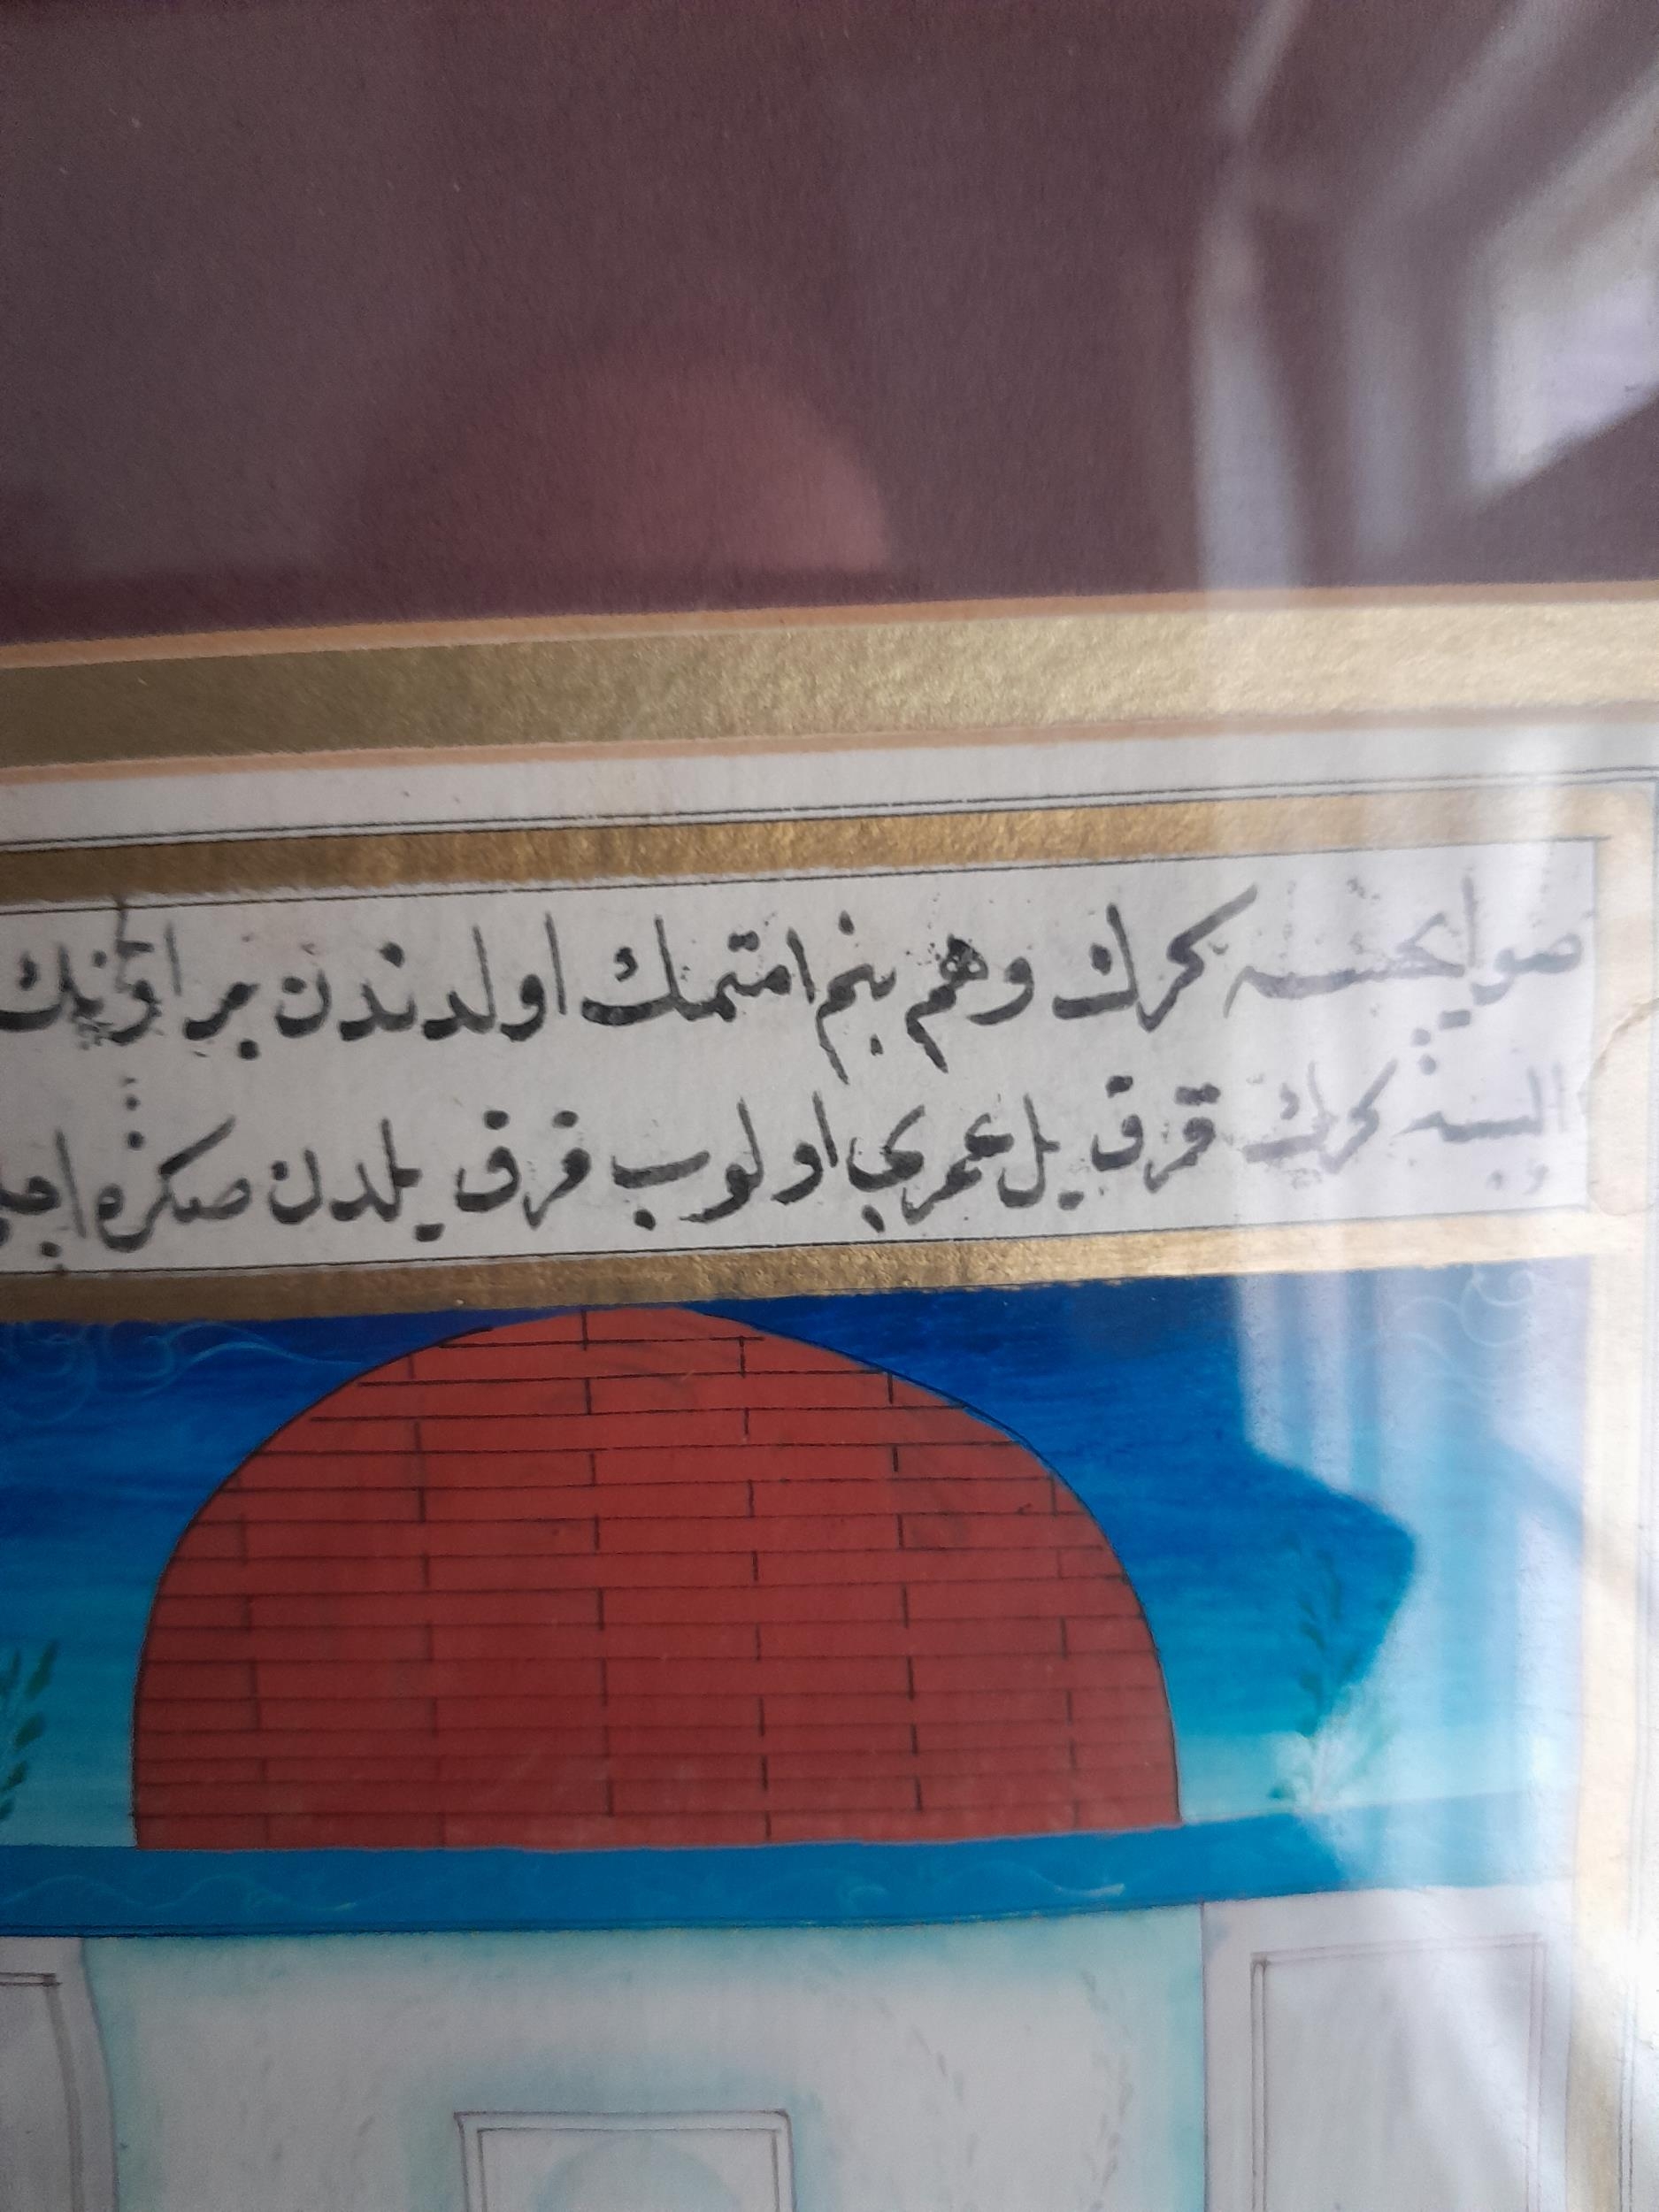 صو ايچسه كرك وهم بنم امتمك اولدندن بر اونك
البسه كرك قرق يل عمري اولوب قرق يلدن صكره